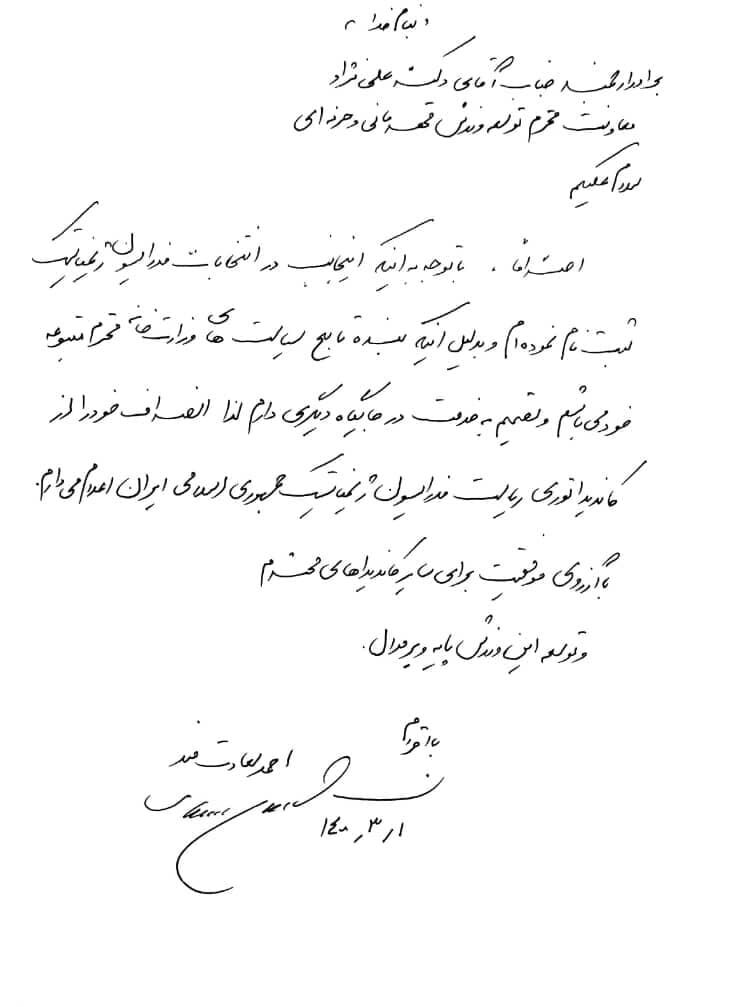 بنام خدا
برادر ارجمند جناب آقای دکتر علی نژاد
معاونت محترم توسعه ورزش قهرمانی و حرفه ای
سلام علیکم
احتراماً، با توجه به اینکه اینجانب در انتخابات فدراسیون ژیمناستیک
ثبت نام نموده ام و بدلیل اینکه بنده تابع سیاست های وزارت خانه محترم متبوعه
خود می باشم و تصمیم به خدمت در جایگاه دیگری دارم لذا انصراف خود را از
کاندیداتوری ریاست فدراسیون ژیمناستیک جمهوری اسلامی ایران اعلام می دارم.
با آرزوی موفقیت برای سایر کاندیداهای محترم
و توسعه این ورزش پایه و پرمدال.
با احترام
احمد سعادتمند
۱۴۰۰/۳/۱